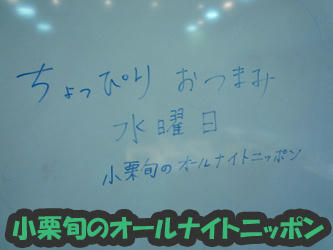 ちょっぴり おつまみ
水曜日
小栗旬のオールナイトニッポン
小栗旬のオールナイトニッポン